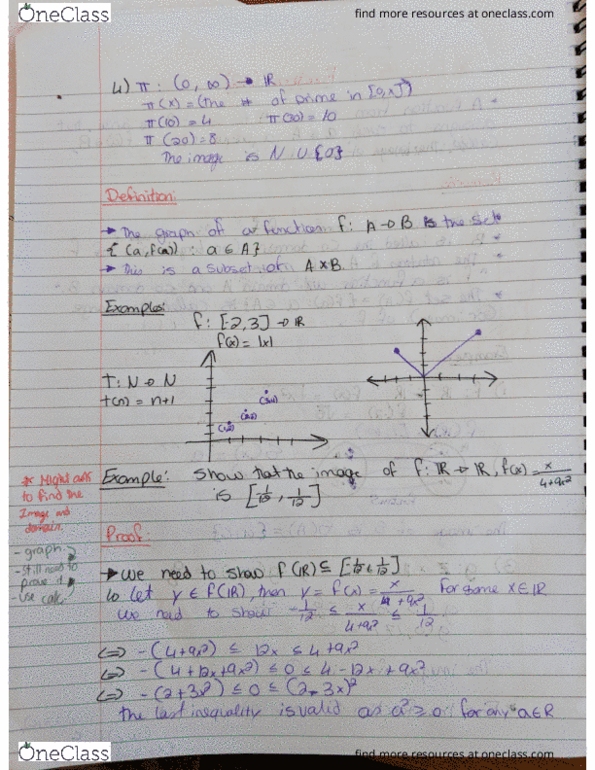 OneClass
find more resources at oneclass.com
4) π : (0, ∞) → ℝ
π(x) = (the # of prime in [0,x])
π(10) = 4 π(30) = 10
π(20) = 8
The image is N ∪ {0}
Definition:
→ The graph of a function f: A → B is the set
{(a, f(a)) : a ∈ A}
→ This is a subset of A × B.
Examples:
f: [-2,3] → ℝ
f(x) = |x|
T: N → N
t(n) = n+1
(1,2) (2,3) (3,4)
* Might ask
to find the
Image and
domain.
- graph
- still need to
prove it
- use calc
Example: Show that the image of f: ℝ → ℝ, f(x) = x/(4+9x²)
is [1/12, 1/12]
Proof:
→ we need to show f(ℝ) ⊆ [-1/12, 1/12]
Let y ∈ f(ℝ), then y = f(x) = x/(4+9x²) for some x ∈ ℝ
we need to show -1/12 ≤ x/(4+9x²) ≤ 1/12
⟺ -(4+9x²) ≤ 12x ≤ 4+9x²
⟺ -(4+12x+9x²) ≤ 0 ≤ 4-12x+9x²
⟺ -(2+3x²) ≤ 0 ≤ (2-3x)²
the last inequality is valid as a² ≥ 0 for any a ∈ ℝ
OneClass
find more resources at oneclass.com